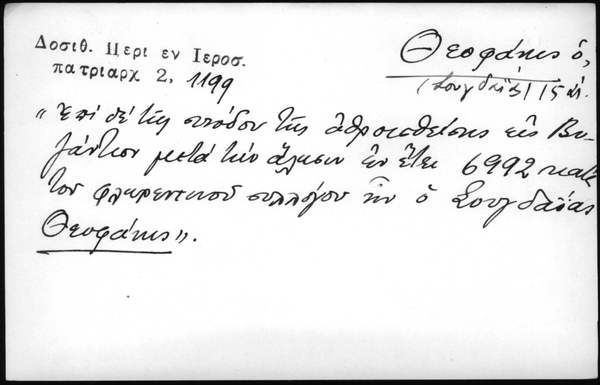 Δοσιθ. Περι εν Ιεροσ.
πατριαρχ 2, 1199
Θεοφάνης ὁ,
(Σουγδαΐας) 15 αἰ.
"Ἐπί δέ τῆς συνόδου τῆς ἀθροισθείσης εἰς Βυ-
ζάντιον μετά τήν ἅλωσιν ἐν ἔτει 6992 κατά
τοῦ φλωρεντινοῦ συλλόγου ἦν ὁ Σουγδαΐας
Θεοφάνης".